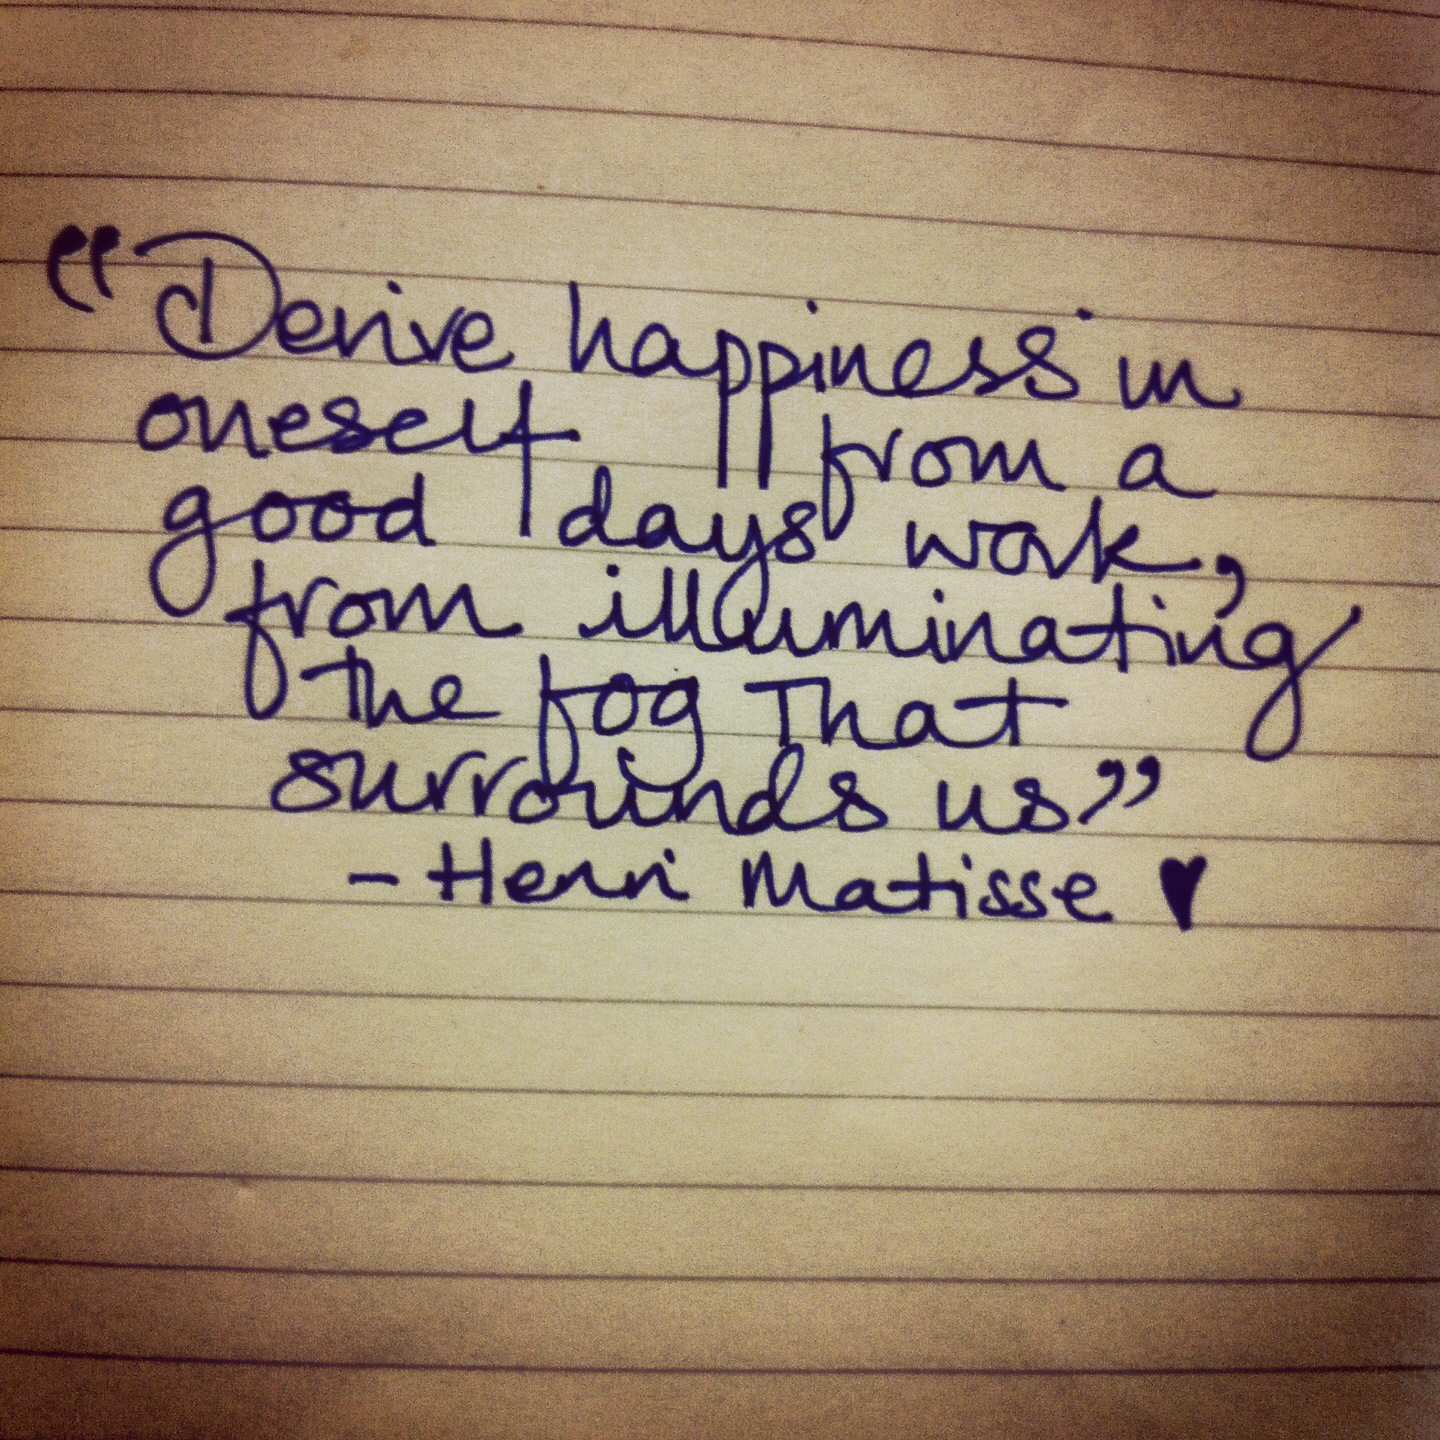 “Derive happiness in
oneself from a
good days work,
from illuminating
the fog that
surrounds us”
- Henri Matisse ♥